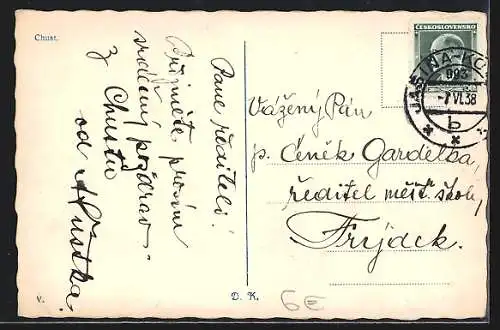 Chust.
Pane řediteli!
Přijměte prosím
srdečný pozdrav
z Chustu
od
V.
D. K.
ČESKOSLOVENSKO
JASIŇA-KÖ
093
-7 VI 38
b
Vážený Pán
p. Čeněk Gardelka,
ředitel měšť. školy
Frýdek.
6E